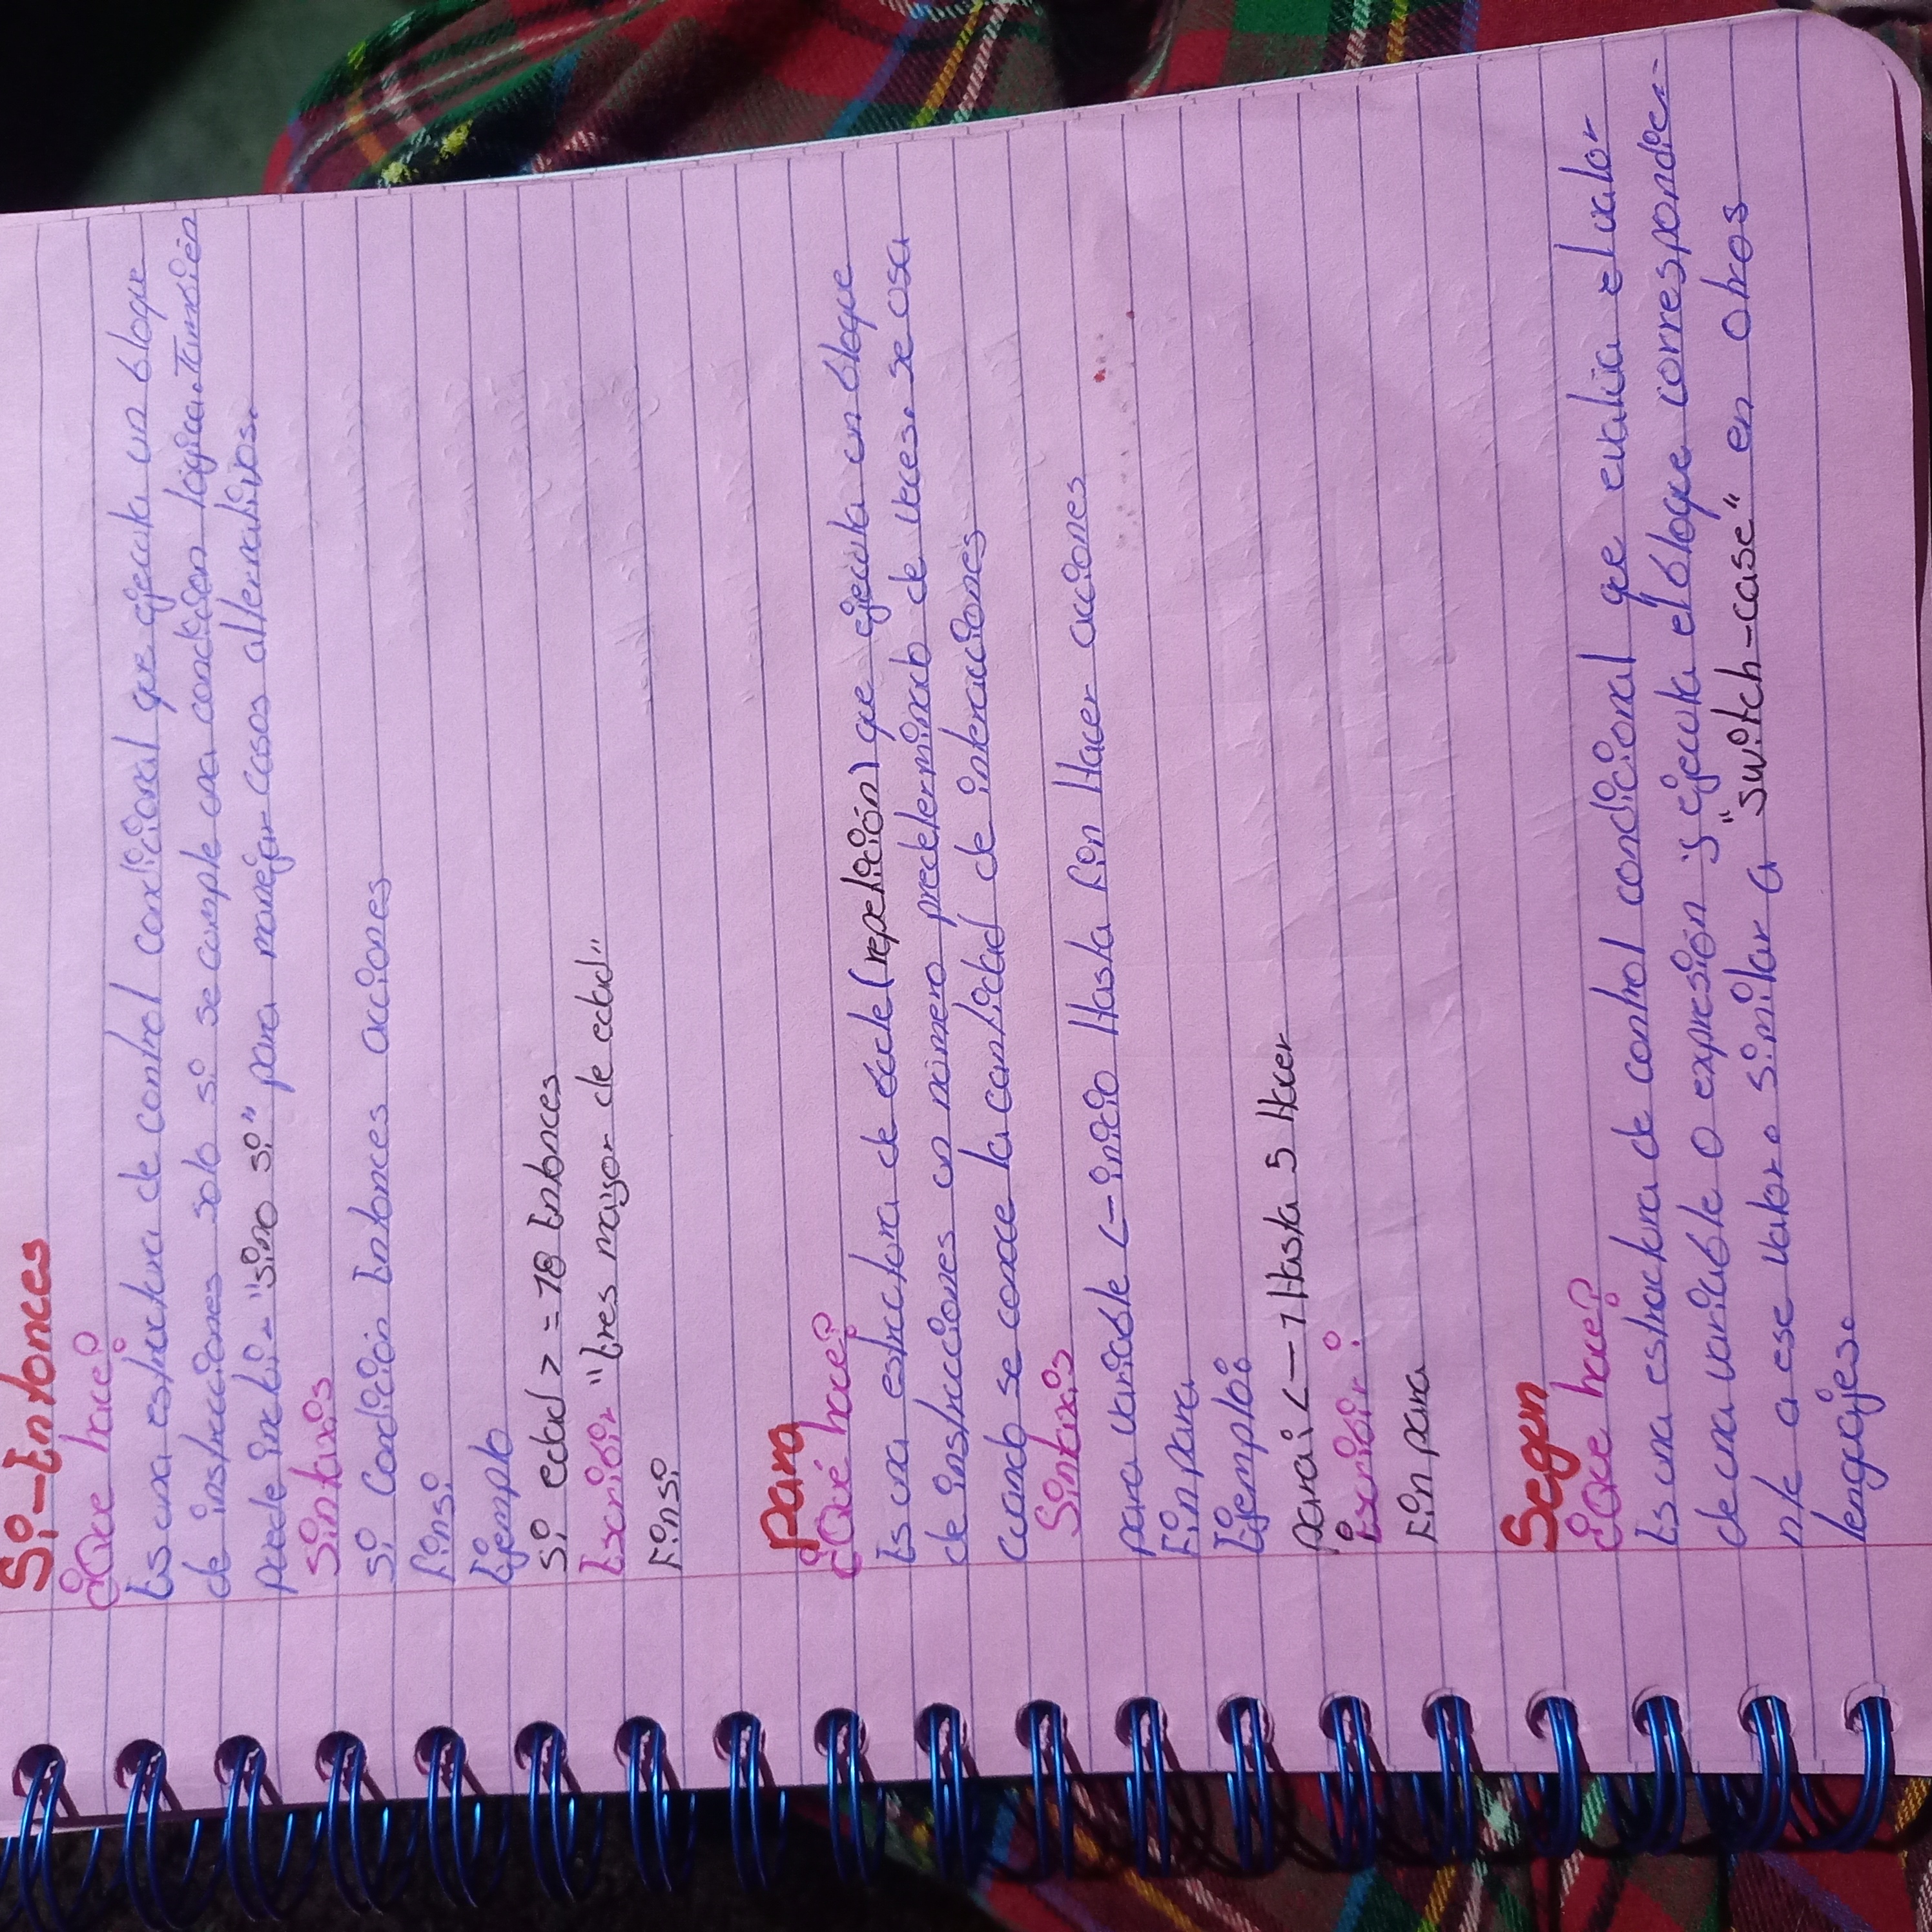 Si-Entonces
¿Que hace?
Es una estructura de control condicional que ejecuta un bloque
de instrucciones solo si se cumple una condición lógica. También
puede incluir "sino si" para manejar casos alternativos.
Sintaxis
si Condición Entonces acciones
Finsi
Ejemplo
si edad > = 18 Entonces
Escribir "Eres mayor de edad"
Finsi
para
¿Qué hace?
Es una estructura de ciclo (repetición) que ejecuta un bloque
de instrucciones un número predeterminado de veces. se usa
cuando se conoce la cantidad de interacciones
Sintaxis
para variable <- inicio Hasta fin Hacer acciones
Fin para
Ejemplo:
para i <- 1 Hasta 5 Hacer
Escribir i
Fin para
Segun
¿Que hace?
Es una estructura de control condicional que evalúa el valor
de una variable o expresión y ejecuta el bloque correspondie-
nte a ese valor. similar a "switch-case" en otros
lenguajes.